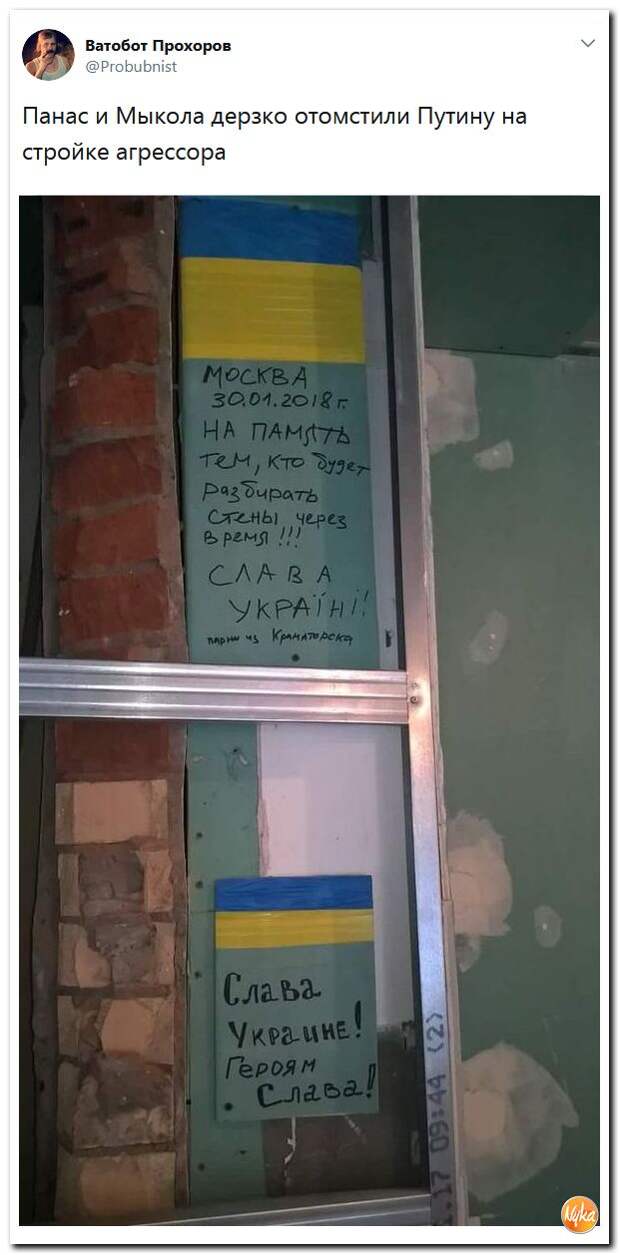 Ватобот Прохоров
@Probubnist
Панас и Мыкола дерзко отомстили Путину на
стройке агрессора
МОСКВА
30.01.2018г.
НА ПАМЯТЬ
тем, кто будет
разбирать
стены через
время!!!
СЛАВА
УКРАЇНІ!
парни из Краматорска
Слава
Украине!
Героям
Слава!
1.17 09:44 (2)
Nyka